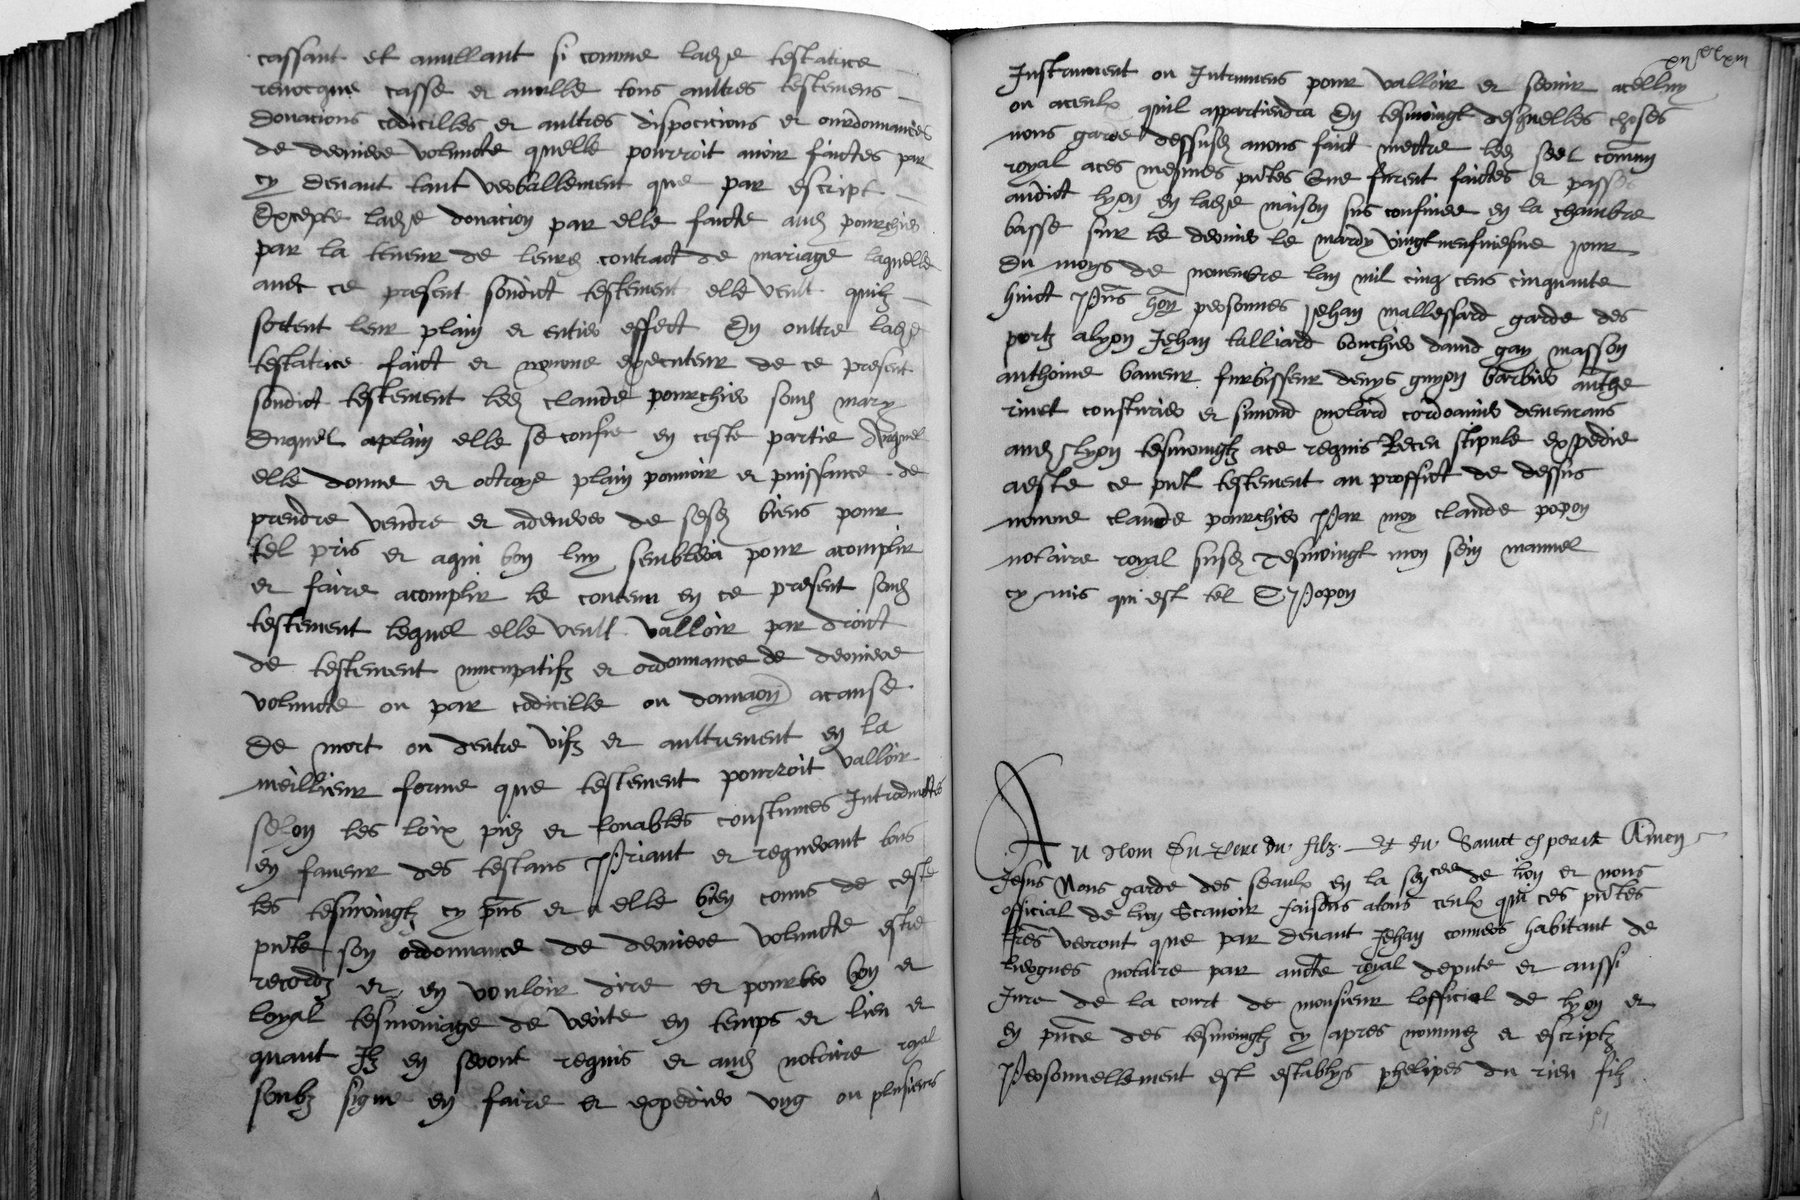 cassant et anullant si comme ladte testatrice
renocque casse et anulle tous aultres testemens
donacions codicilles et aultres disposicions et ourdonnances
de derniere volunte quelle pourroit avoir faictes par
cy devant tant verballement que par escript
Excepte ladte donacion par elle faicte aud pourchier
par la teneur de leurd contract de mariage laquelle
avec ce present soudict testement elle veult quilz
sortent leur plain et entier effect En oultre ladte
testatrice faict et nomme executeur de ce present
soudict testement led claude pourchier soud mary
Duquel aplain elle se confie en ceste partie Auquel
elle donne et octroye plain pouvoir et puissance de
prendre vendre et adenerer de sesd biens pour
tel pris et aqui bon luy semblera pour acomplir
et faire acomplir le contenu en ce present soud
testement lequel elle veult valloir par droict
de testement nuncupatifz et ordonnance de derniere
volunte ou par codicille ou donnacion acause
de mort ou dentre vifz et aultrement en la
meillieur forme que testement pourroit valloir
selon les loix pies et louables coustumes Introduictes
en faveur des testans Priant et requerant tous
les tesmoingtz cy pns et a elle bien connus de ceste
pnte son ordonnance de derniere volunte estre
recordz et en vouloir dire et pourter bon et
loyal tesmoniage de verite en temps et lieu et
quant Ilz en seront requis et aud notaire royal
soubz signe en faire et expedier ung ou plusieurs
xii xx xiii
Instrument ou Intrumens pour valloir et servir acelluy
ou aceulx quil appartiendra En tesmoingt desquelles choses
nous garde dessusd avons faict mectre led seel commun
royal aces mesmes pntes Que furent faictes et passes
audict lyon en ladte maison sus confinee en la chambre
basse sur le derrier le mardy vingt neufuiesme jour
du moys de novembre lan mil cinq cens cinquante
huict Pns hon personnes Jehan mallessard garde des
portz alyon Jehan talliard bouchier david gay masson
anthoine baveur furbisseur denys guyon barbier anthe
rivet cousturier et simond molard cordoanier demeurans
aud lyon tesmoingtz ace requis Receu stipule expedie
aeste ce pnt testement au proffict de dessus
nomme claude pourchier Par moy claude popon
notaire royal susd Tesmoingt mon sein manuel
cy mis qui est tel C Popon
Au Nom Du Pere du filz Et du Sainct esperit Amen
Jesus Nous garde des seaulx en la sencee de lion et nous
official de lion Scavoir faisons atous ceulx qui ces pntes
lres verront que par devant Jehan conners habitant de
liergues notaire par aucte royal depute et aussi
Jure de la court de monsieur lofficial de lyon et
en pnce des tesmoingtz cy apres nommez et escriptz
Personnellement est establys phelipes du rieu filz